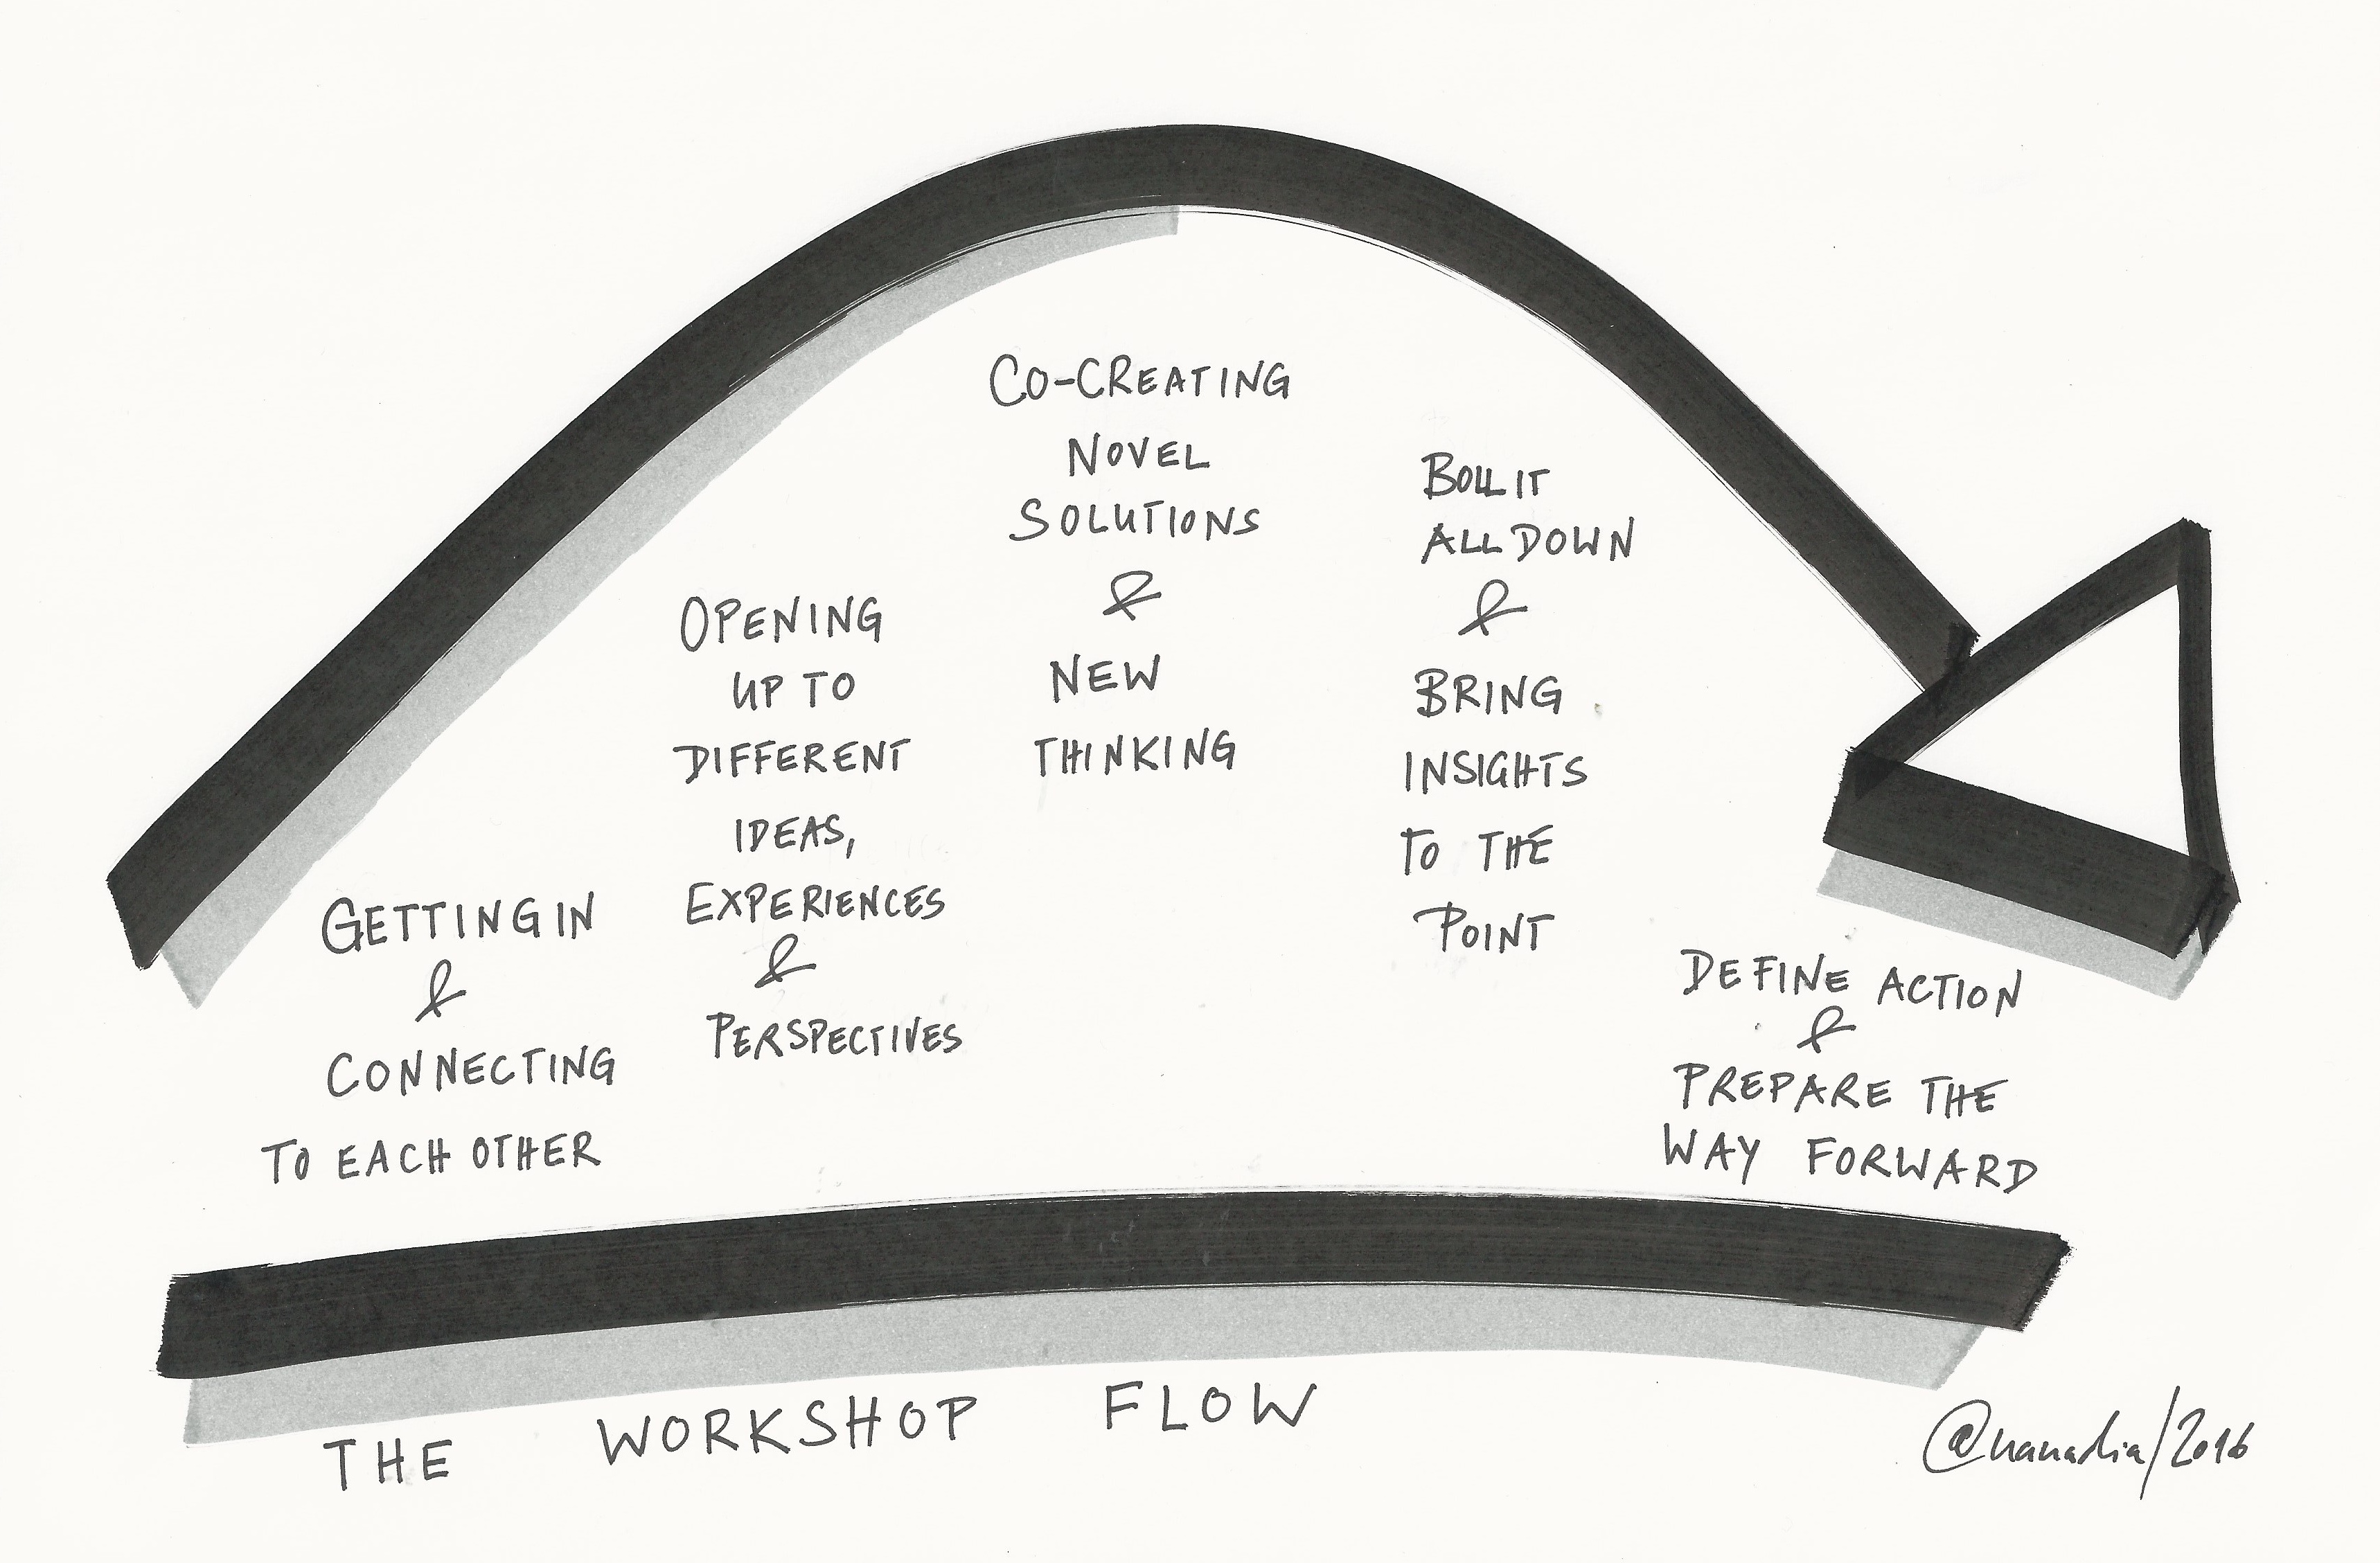 GETTING IN
&
CONNECTING
TO EACH OTHER
OPENING
UP TO
DIFFERENT
IDEAS,
EXPERIENCES
&
PERSPECTIVES
CO-CREATING
NOVEL
SOLUTIONS
&
NEW
THINKING
BOIL IT
ALL DOWN
&
BRING
INSIGHTS
TO THE
POINT
DEFINE ACTION
&
PREPARE THE
WAY FORWARD
THE WORKSHOP FLOW
@nanadia/2016